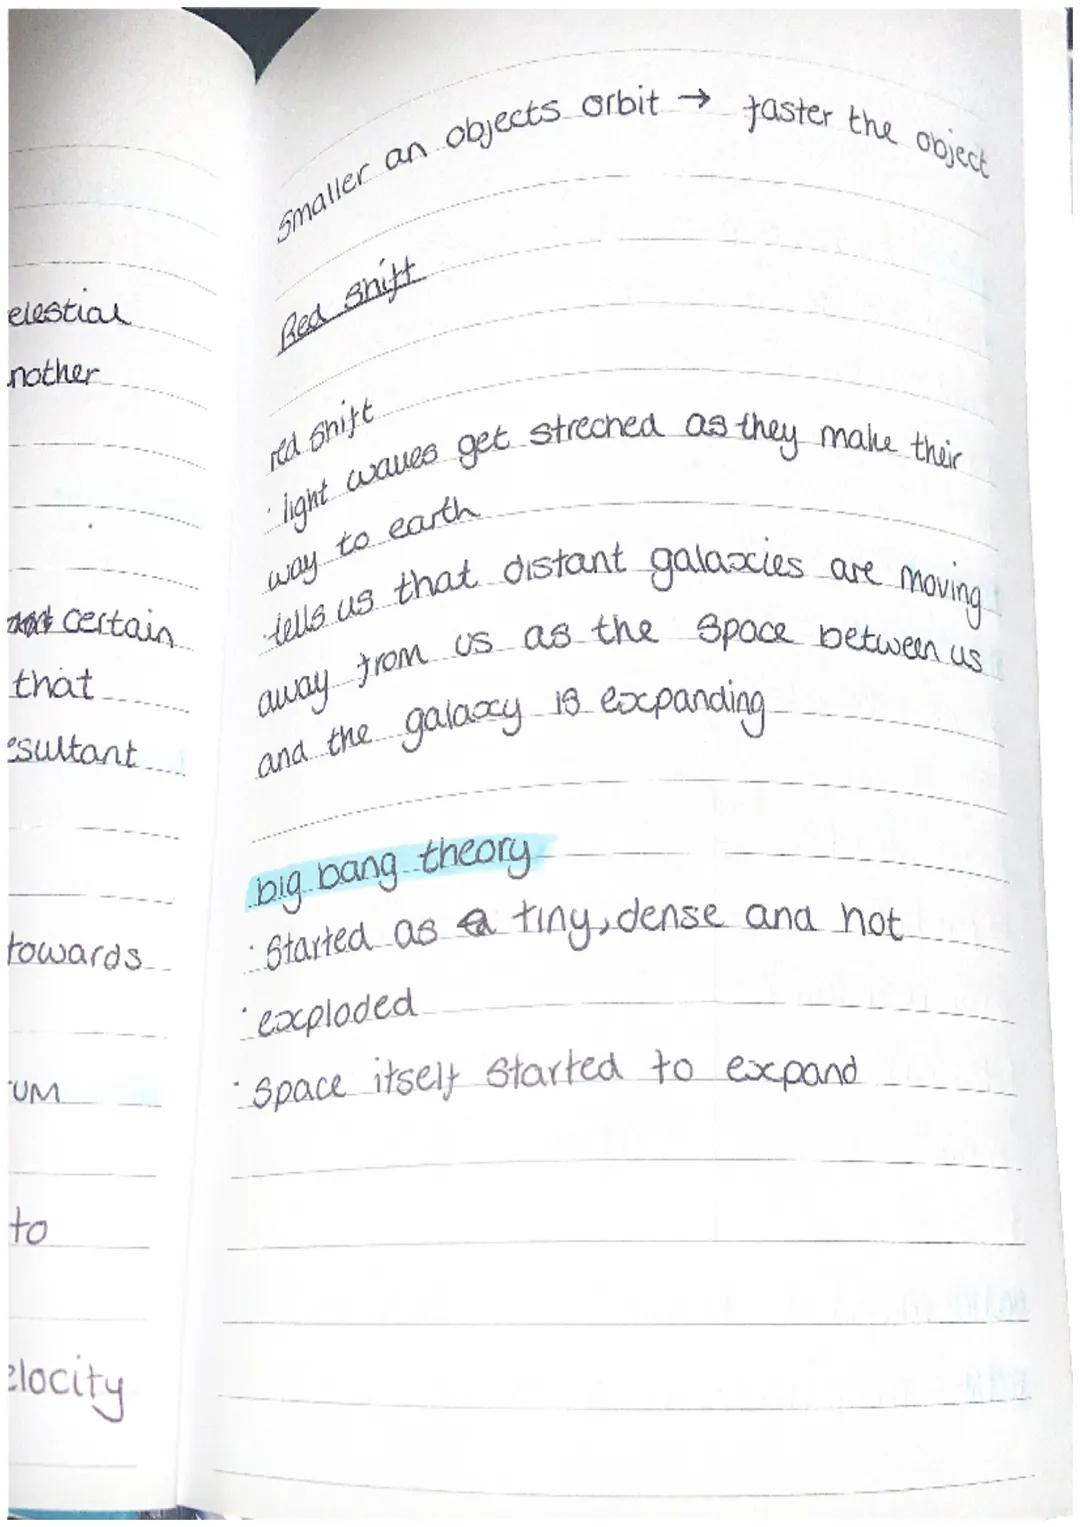 elestial
nother
certain
that
esultant
towards
UM
to
elocity
smaller an objects orbit → faster the object
Red shift
red shift
· light waves get streched as they make their
way to earth
· tells us that distant galaxies are moving
away from us as the space between us
and the galaxy is expanding
big bang theory
· Started as a tiny, dense and hot
· exploded
· Space itself started to expand